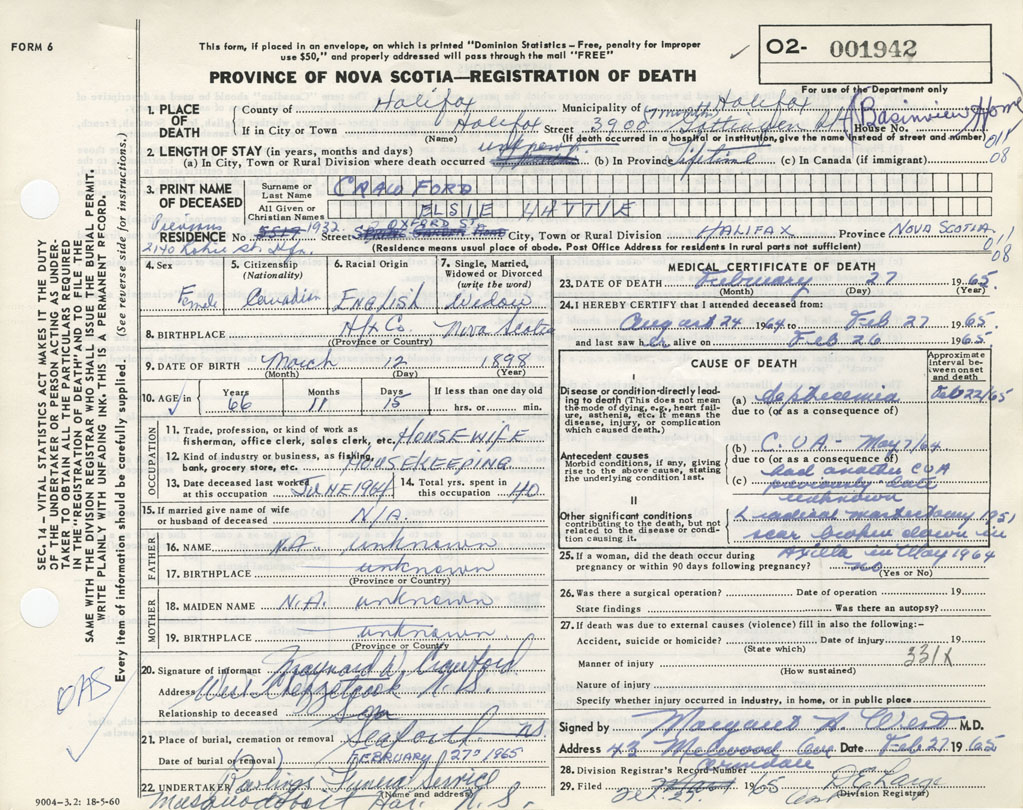 FORM 6
This form, if placed in an envelope, on which is printed "Dominion Statistics – Free, penalty for improper
use $50," and properly addressed will pass through the mail "FREE"
PROVINCE OF NOVA SCOTIA—REGISTRATION OF DEATH
✓ O2- 001942
For use of the Department only
1. PLACE OF DEATH
County of Halifax Municipality of Halifax
If in City or Town Halifax Street 3900 Gottingen House No. (Basinview Home)
(Name) (If death occurred in a hospital or institution, give the name instead of street and number)
011
08
2. LENGTH OF STAY (in years, months and days)
(a) In City, Town or Rural Division where death occurred (b) In Province lifetime (c) In Canada (if immigrant)
3. PRINT NAME OF DECEASED
Surname or Last Name CRAWFORD
All Given or Christian Names ELSIE HATTIE
Previous
RESIDENCE No 1932 Street OXFORD ST City, Town or Rural Division HALIFAX Province NOVA SCOTIA
2140
011
08
(Residence means usual place of abode. Post Office Address for residents in rural parts not sufficient)
4. Sex Female
5. Citizenship (Nationality) Canadian
6. Racial Origin English
7. Single, Married, Widowed or Divorced (write the word) Widow
8. BIRTHPLACE Hfx Co. Nova Scotia
(Province or Country)
9. DATE OF BIRTH March 12 1898
(Month) (Day) (Year)
10. AGE in Years 66 Months 11 Days 15 If less than one day old hrs. or min.
OCCUPATION
11. Trade, profession, or kind of work as fisherman, office clerk, sales clerk, etc. HOUSEWIFE
12. Kind of industry or business, as fishing, bank, grocery store, etc. HOUSEKEEPING
13. Date deceased last worked at this occupation JUNE 1964
14. Total yrs. spent in this occupation 40
15. If married give name of wife or husband of deceased N/A
FATHER
16. NAME N.A. unknown
17. BIRTHPLACE unknown
(Province or Country)
MOTHER
18. MAIDEN NAME N.A. unknown
19. BIRTHPLACE unknown
(Province or Country)
20. Signature of informant Maynard W. Crawford
Address West Chezzetcook N.S.
Relationship to deceased Son
21. Place of burial, cremation or removal Seaforth NS
Date of burial (or removal) FEBRUARY 27th 1965
22. UNDERTAKER Rawlings Funeral Service
(Name and address)
Musquodoboit Har. N.S.
9004–3.2: 18-5-60
MEDICAL CERTIFICATE OF DEATH
23. DATE OF DEATH February 27 1965
(Month) (Day) (Year)
24. I HEREBY CERTIFY that I attended deceased from:
August 24 1964 to Feb 27 1965
and last saw her alive on Feb 26 1965
CAUSE OF DEATH
Approximate interval between onset and death
I
Disease or condition directly leading to death (This does not mean the mode of dying, e.g., heart failure, asthenia, etc. It means the disease, injury, or complication which caused death.)
(a) Septicemia Feb 22/65
due to (or as a consequence of)
Antecedent causes
Morbid conditions, if any, giving rise to the above cause, stating the underlying condition last.
(b) C.V.A - May 7/64
due to (or as a consequence of)
had another CVA
(c) previously date
unknown
II
Other significant conditions
contributing to the death, but not related to the disease or condition causing it.
radical mastectomy 1951
scar broken down in
Axilla in May 1964
25. If a woman, did the death occur during pregnancy or within 90 days following pregnancy? no (Yes or No)
26. Was there a surgical operation? Date of operation 19
State findings Was there an autopsy?
27. If death was due to external causes (violence) fill in also the following:–
Accident, suicide or homicide? Date of injury 19
(State which)
331X
Manner of injury
(How sustained)
Nature of injury
Specify whether injury occurred in industry, in home, or in public place
Signed by Margaret A. West M.D.
Address Ave Date Feb 27 1965
Armdale
28. Division Registrar's Record Number
29. Filed 1965
(Division Registrar)
SEC. 14 – VITAL STATISTICS ACT MAKES IT THE DUTY
OF THE UNDERTAKER OR PERSON ACTING AS UNDER-
TAKER TO OBTAIN ALL THE PARTICULARS REQUIRED
IN THE "REGISTRATION OF DEATH" AND TO FILE THE
SAME WITH THE DIVISION REGISTRAR WHO SHALL ISSUE THE BURIAL PERMIT.
WRITE PLAINLY WITH UNFADING INK. THIS IS A PERMANENT RECORD.
Every item of information should be carefully supplied. (See reverse side for instructions.)
OAS